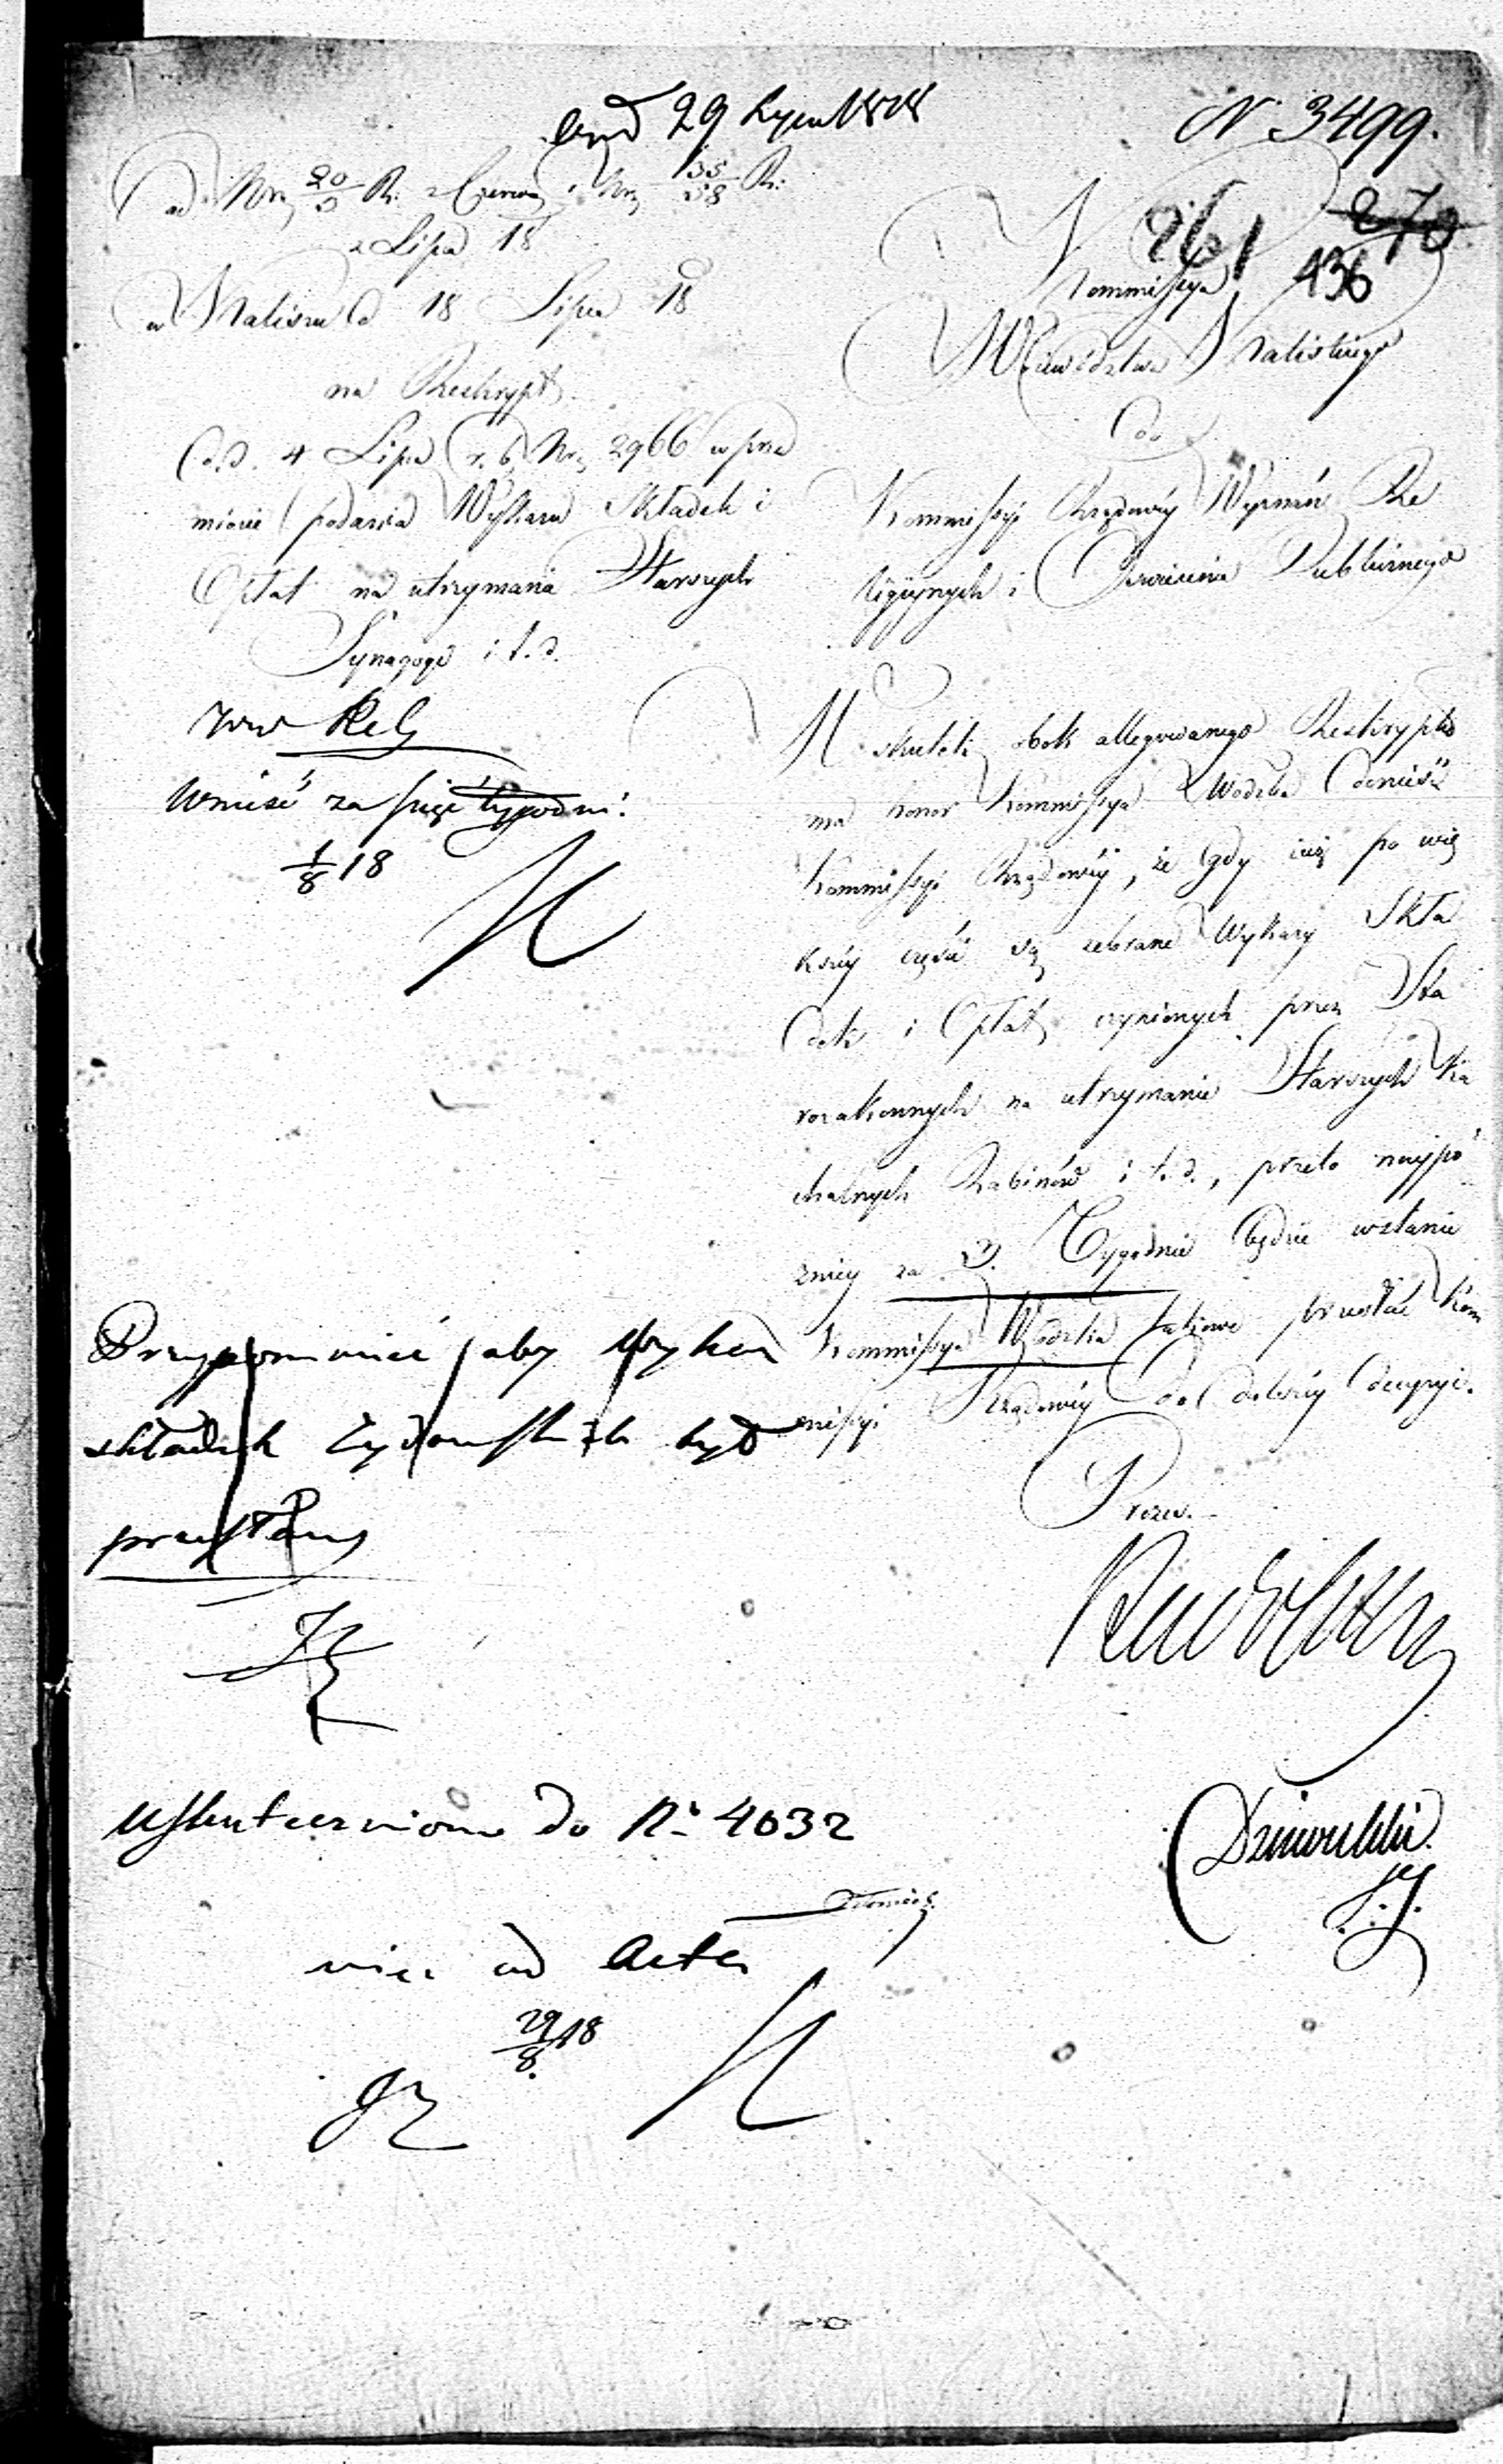 29 Lipca 1818
N. 3499.
ad Nrm 20/5 R. z Czerwca i Nrm 35/58 R:
z Lipca 18
w Kaliszu d 18 Lipca 18
na Reskrypt
d.d. 4 Lipca r. b. Nr. 2966 w prze
miocie podania Wykazu Składek i
Opłat na utrzymania Starszych
Synagogi i t. d.
261 270
436
Kommissya
Woiewództwa Kaliskiego
do
Kommissyi Rządowéy Wyznań Re
ligijnych i Oświecenia Publicznego
W skutek obok allegowanego Reskryptu
ma honor Kommissya Wodzka donieść
Kommissyi Rządowéy, że gdy iuż po wię
kszéy części są zebrane Wykazy Skła
dek i Opłat czynionych przez Sta
rozakonnych na utrzymanie Starszych Ka
chalnych Rabinów i t. d., przeto naypó
zniey za 3. Tygodnie będzie w stanie
Kommissya Wodzka takowe przesłać Kom
missyi Rządowéy do dalszéy decyzyi.
Prezes.
Wnieść za pięć tygodni.
1/8 18
Przypomnieć aby Wykaz
składek Żydowskich był
przysłany
Uskutecznione do Nr 4032
więc ad Acta
29/8. 18